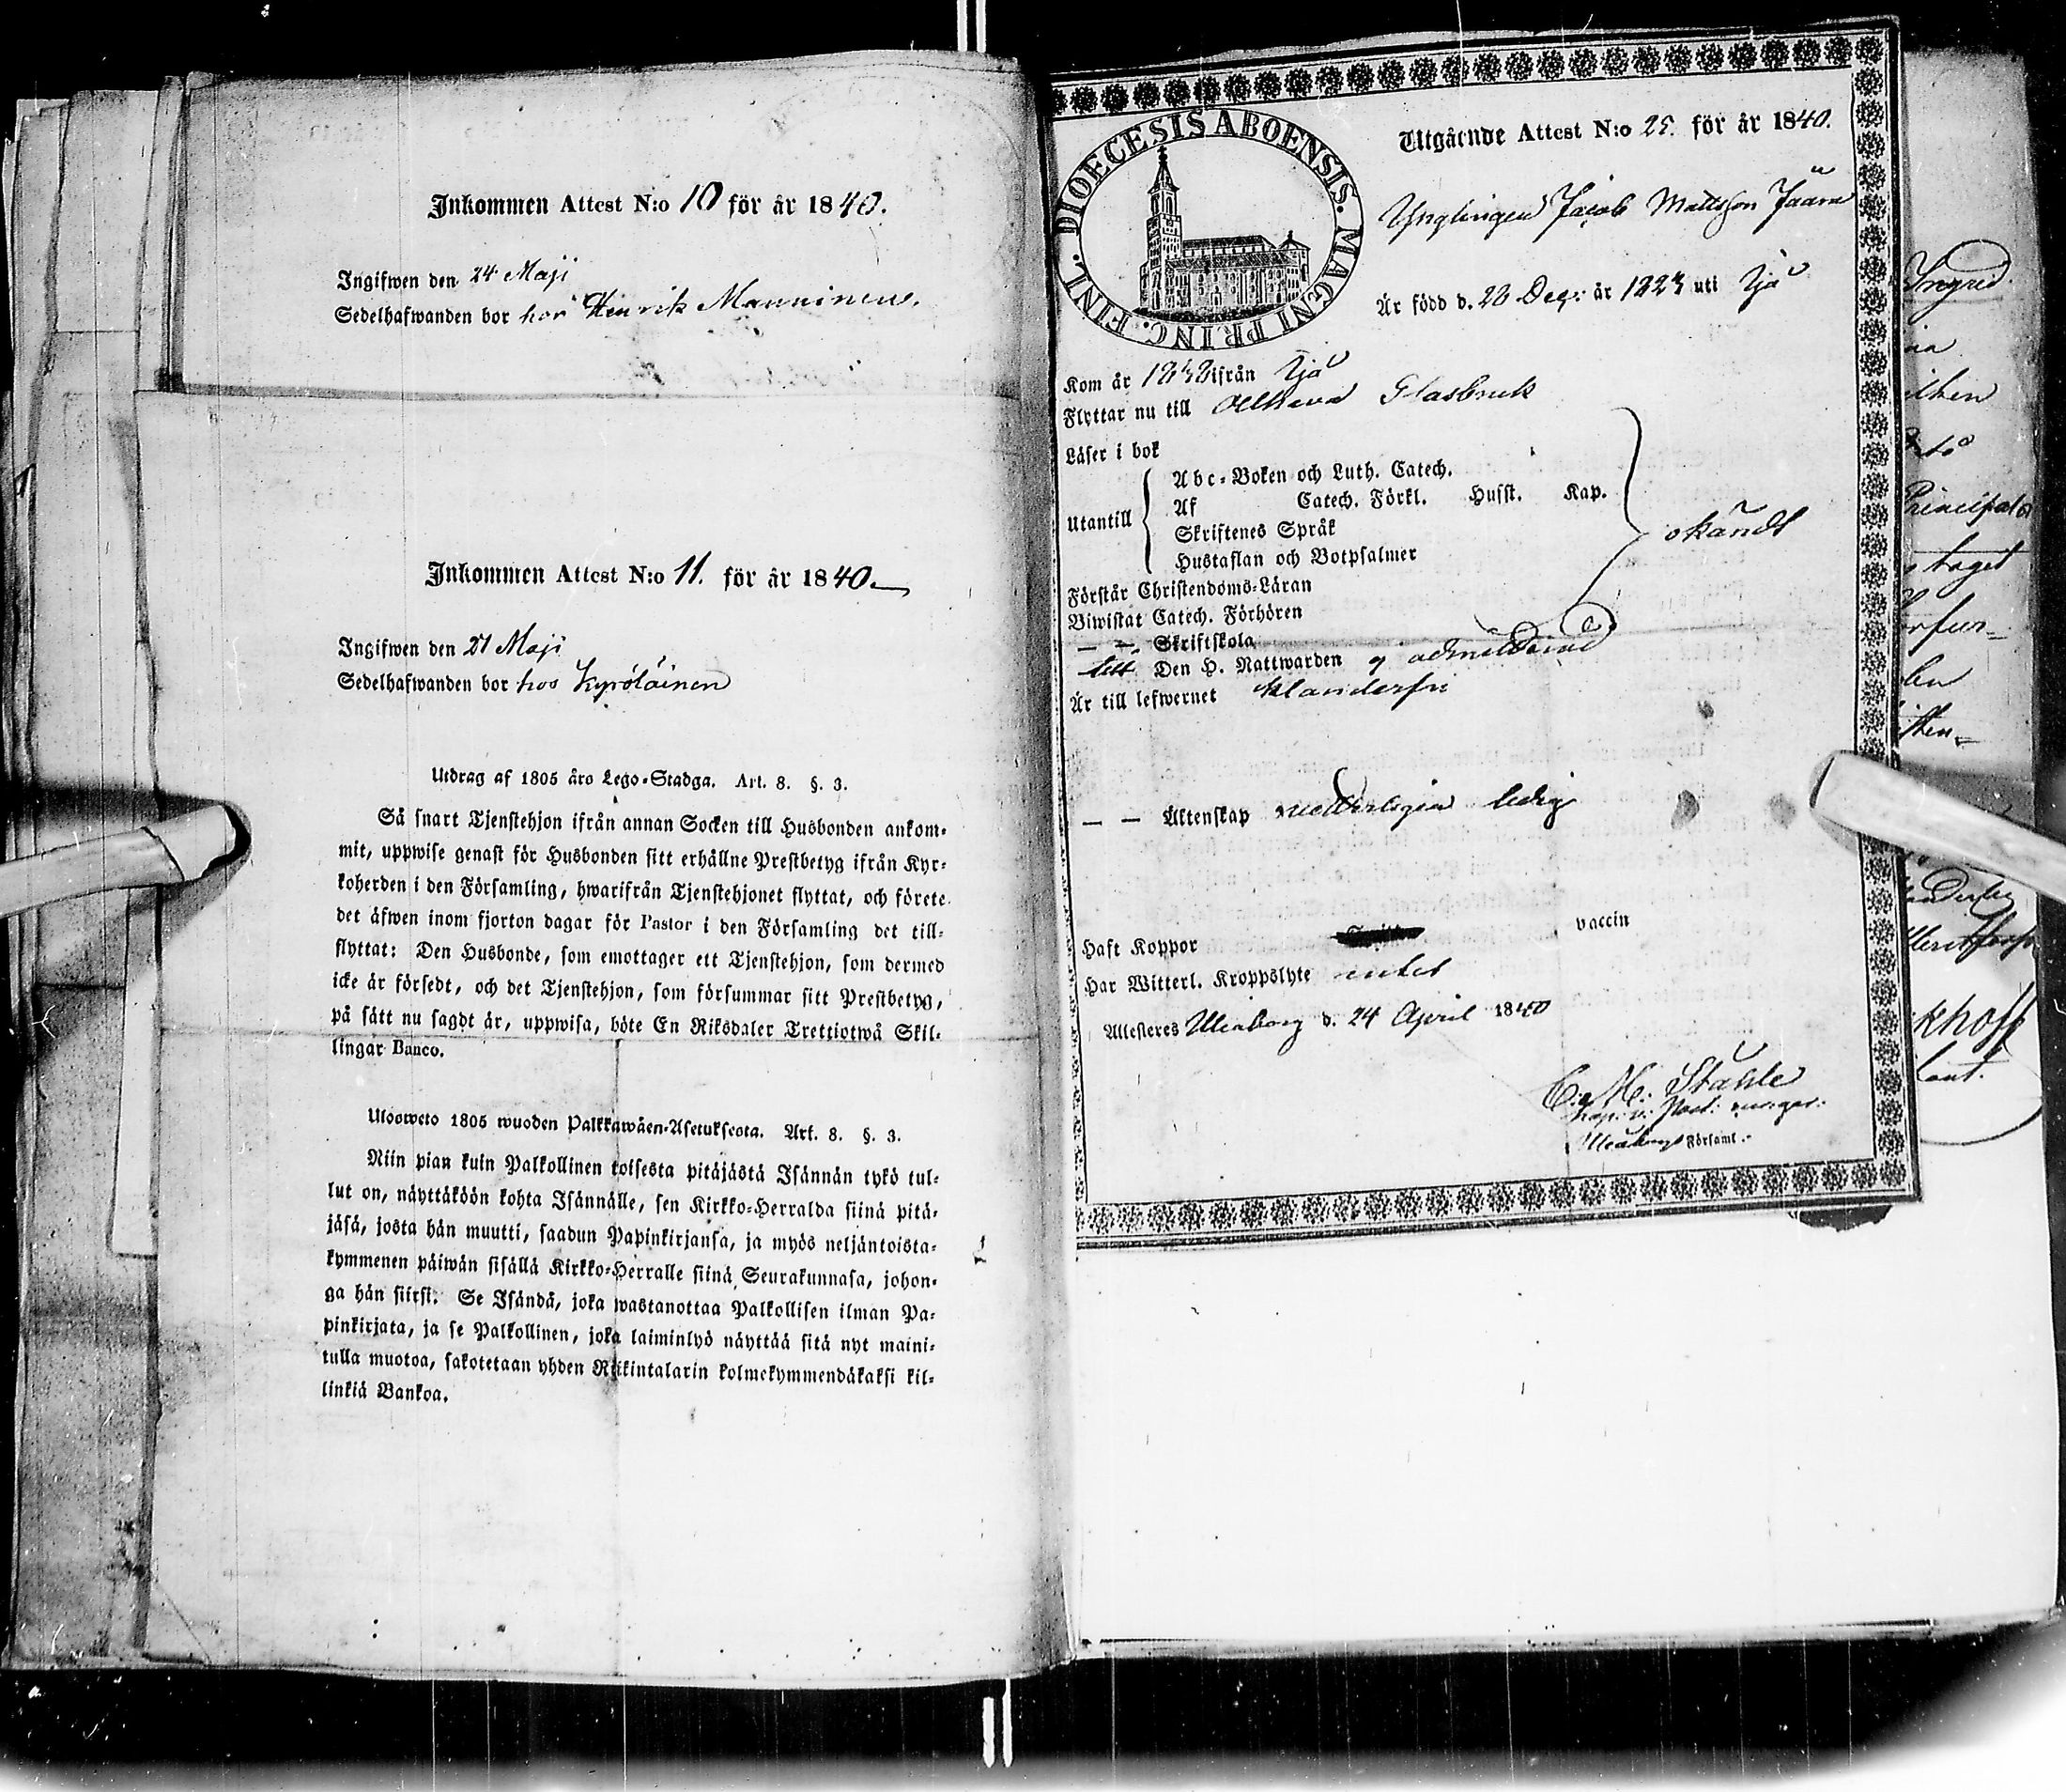 Inkommen Attest N:o 10 för år 1840.
Ingifwen den 24 Maji
Sedelhafwanden bor hos Henrik Manninen.
Inkommen Attest N:o 11. för år 1840.
Ingifwen den 27 Maji
Sedelhafwanden bor hos Kyröläinen
Utdrag af 1805 års Lego-Stadga. Art. 8. §. 3.
Så snart Tjenstehjon ifrån annan Socken till Husbonden ankom-
mit, uppwise genast för Husbonden sitt erhållne Prestbetyg ifrån Kyr-
koherden i den Församling, hwarifrån Tjenstehjonet flyttat, och förete
det äfwen inom fjorton dagar för Pastor i den Församling det till-
flyttat: Den Husbonde, som emottager ett Tjenstehjon, som dermed
icke är försedt, och det Tjenstehjon, som försummar sitt Prestbetyg,
på sätt nu sagdt är, uppwisa, böte En Riksdaler Trettiotwå Skil-
lingar Banco.
Uloosweto 1805 wuoden Palkkawäen-Asetuksesta. Art. 8. §. 3.
Niin pian kuin Palkollinen toisesta pitäjästä Isännän tykö tul-
lut on, näyttäköön kohta Isännälle, sen Kirkko-Herralda siinä pitä-
jäsä, josta hän muutti, saadun Papinkirjansa, ja myös neljäntoista-
kymmenen päiwän sisällä Kirkko-Herralle siinä Seurakunnasa, johon-
ga hän siirsi. Se Isändä, joka wastanottaa Palkollisen ilman Pa-
pinkirjata, ja se Palkollinen, joka laiminlyö näyttää sitä nyt maini-
tulla muotoa, sakotetaan yhden Riikintalarin kolmekymmendäkaksi kil-
linkiä Bankoa.
DIOECESIS ABOENSIS. MAGNI PRINC. FINL.
Utgående Attest N:o 25. för år 1840.
Ynglingen Jacob Mattsson Jäärä
Är född d. 20 Dec: år 1823 uti Ijå
Kom år 1838 ifrån Ijå
Flyttar nu till Olhava Glasbruk
Läser i bok
Utantill
Abc-Boken och Luth. Catech.
Af Catech. Förkl. Husst. Kap.
Skriftenes Språk
Hustaflan och Botpsalmer
okändt
Förstår Christendoms-Läran
Biwistat Catech. Förhören
— — Skriftskola
till Den H. Nattwarden ej admitterad
Är till lefwernet klanderfri
— — Äktenskap ledig
Haft Koppor vaccin
Har Witterl. Kroppslyte intet
Attesteres Uleåborg d. 24 April 1840
C. M. Ståhle
Uleåborgs Församl.
Ingrid
Principal
taget
khoff